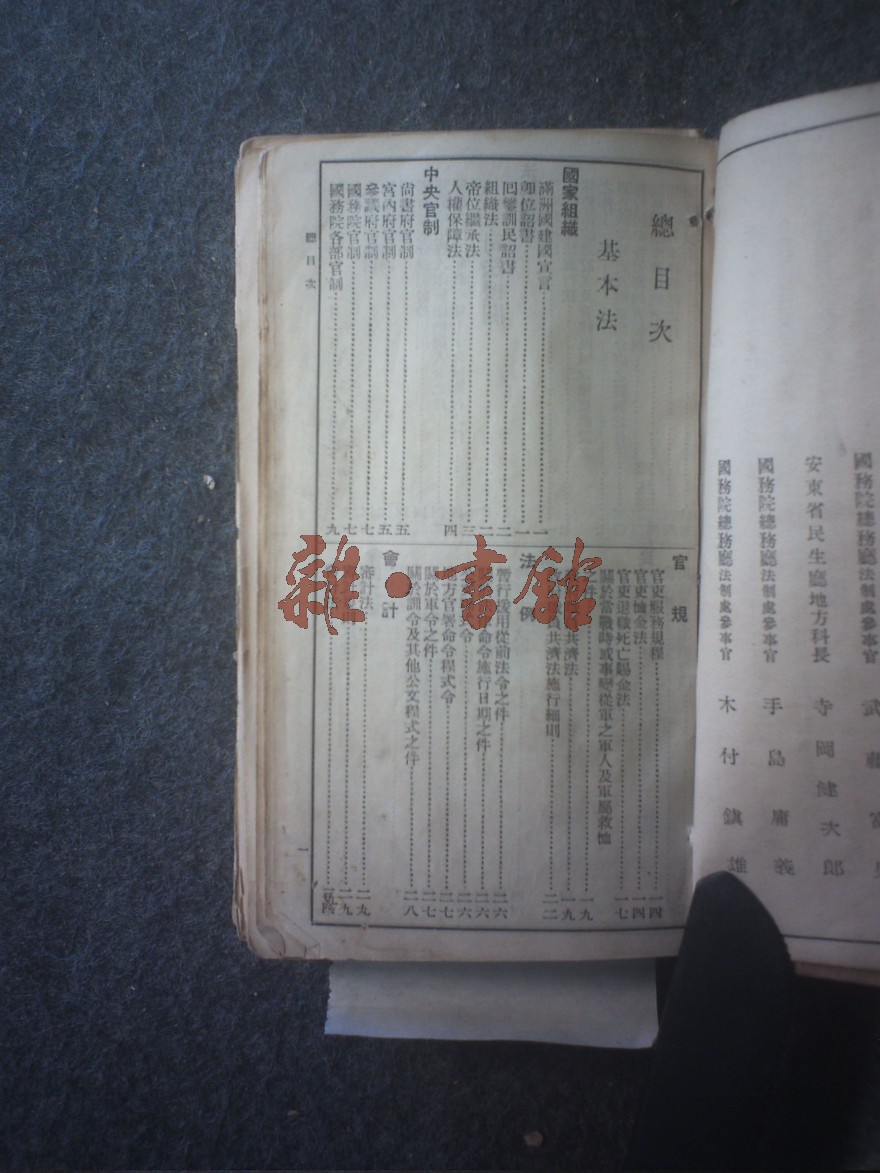 國務院總務廳法制處參事官
安東省民生廳地方科長 寺岡健次郎
國務院總務廳法制處參事官 手島庸義
國務院總務廳法制處參事官 木付鎮雄
總目次
基本法
國家組織
滿洲國建國宣言 一
卽位詔書 一
回鑾訓民詔書 二
組織法 二
帝位繼承法 三
人權保障法 四
中央官制
尙書府官制 五
宮內府官制 五
參議府官制 七
國務院官制 七
國務院各部官制 九
官規
官吏服務規程 一四
官吏恤金法 一四
官吏退職死亡賜金法 一七
關於當戰時或事變從軍之軍人及軍屬救恤
之件 一九
共濟法 一九
共濟法施行細則 二二
法例
暫行援用從前法令之件 二六
命令施行日期之件 二六
式令 二六
地方官署命令程式令 二七
關於軍令之件 二七
關於訓令及其他公文程式之件 二八
會計
審計法 二九
二九
總目次
一
雜·書館